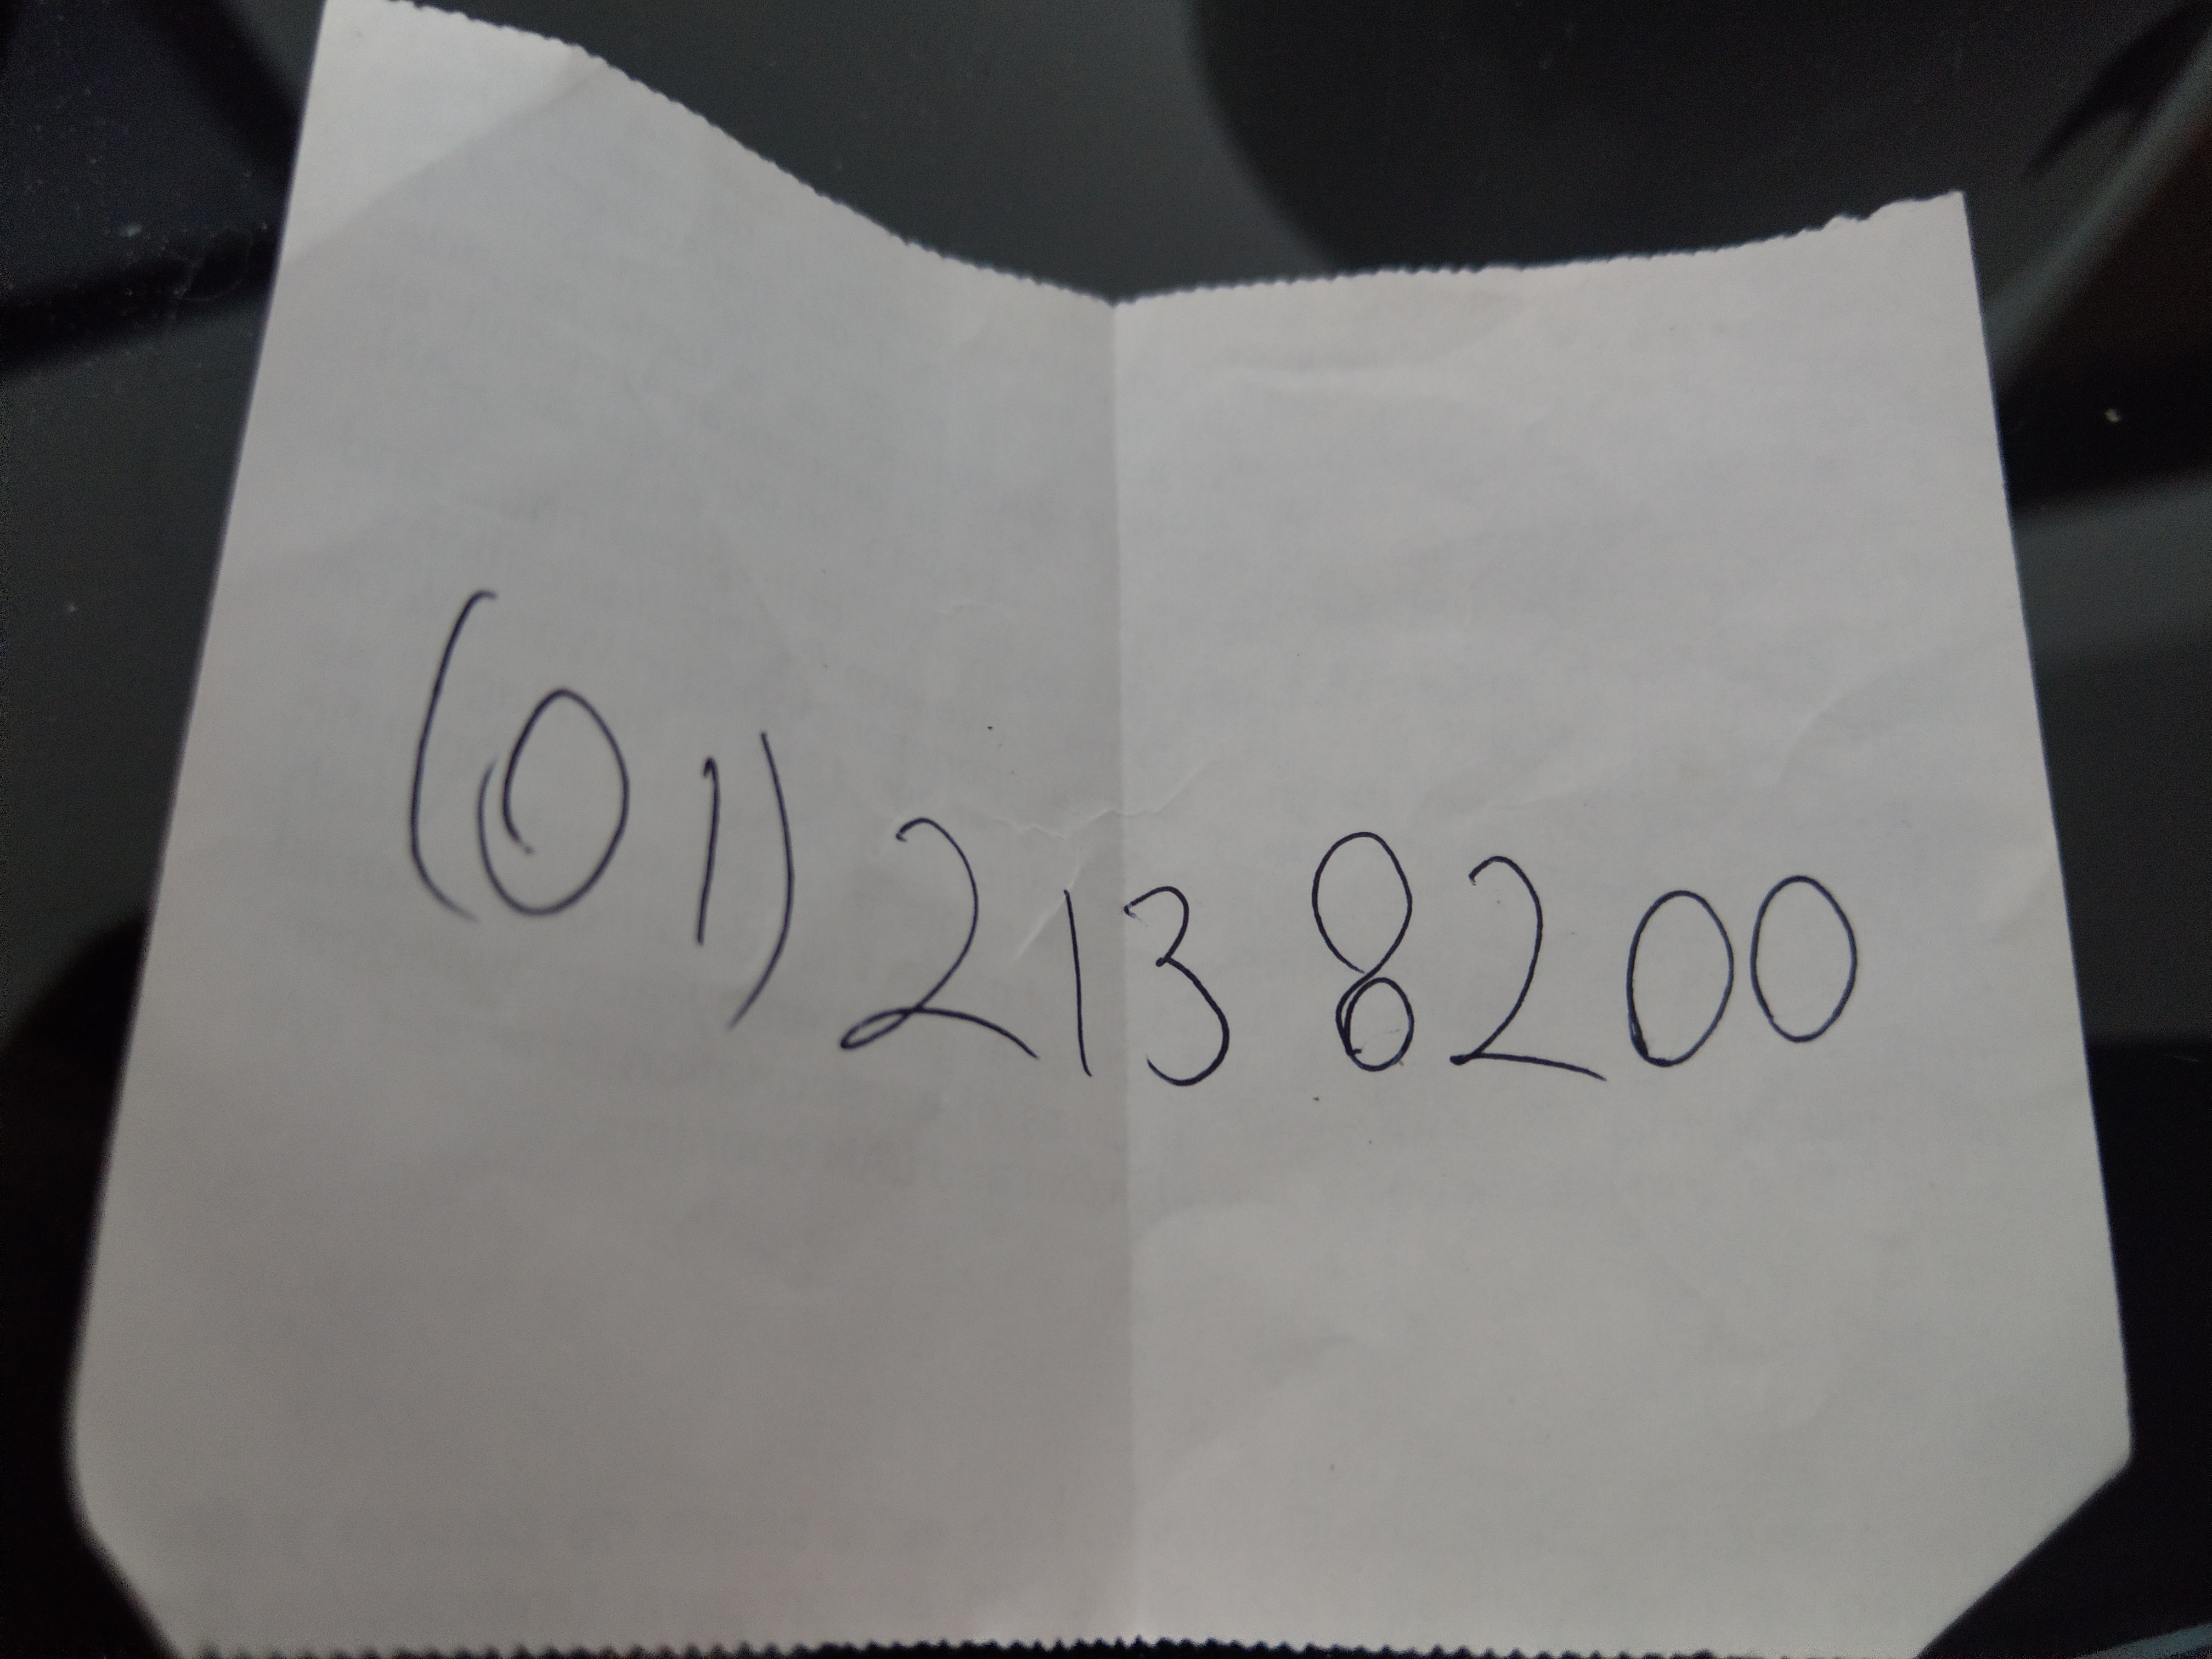 (01) 213 8200